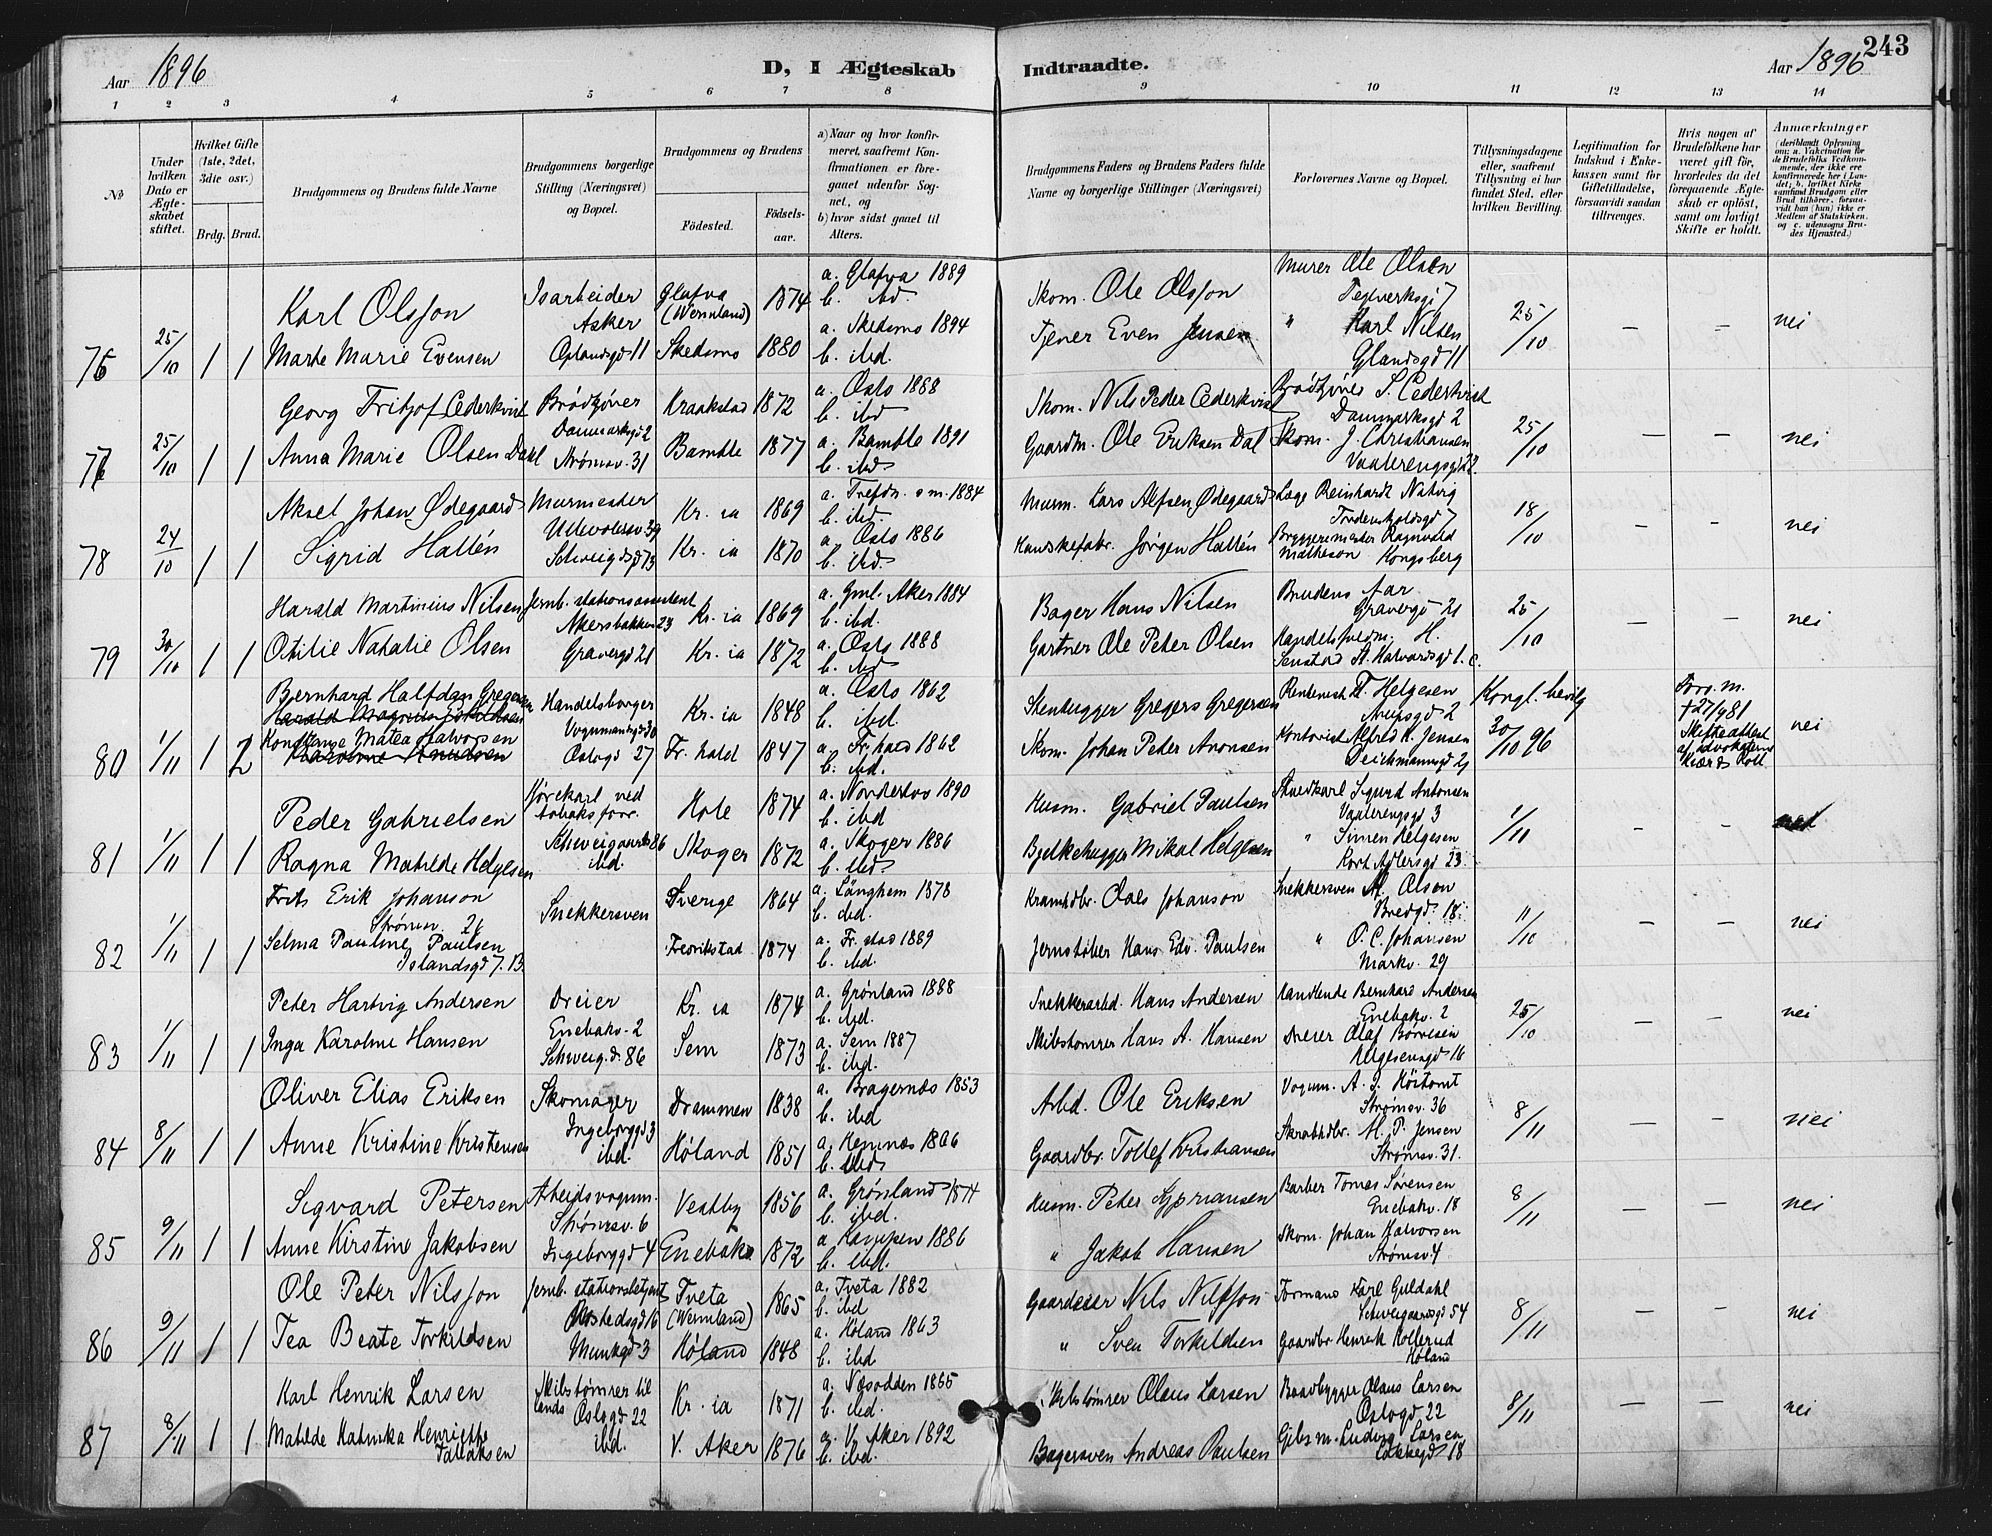 Aar 1896
D, I Ægteskab
Indtraadte.
Aar 1896
243
1 2 3 4 5 6 7 8 9 10 11 12 13 14
No
Under hvilken Dato er Ægteskabet stiftet.
Hvilket Gifte (1ste, 2det, 3die osv.)
Brdg. Brud.
Brudgommens og Brudens fulde Navne
Brudgommens borgerlige Stilling (Næringsvei) og Bopæl.
Brudgommens og Brudens
Fødested.
Fødselsaar.
a) Naar og hvor konfirmeret, saafremt Konfirmationen er foregaaet udenfor Sognet, og
b) hvor sidst gaaet til Alters.
Brudgommens Faders og Brudens Faders fulde Navne og borgerlige Stillinger (Næringsvei)
Forlovernes Navne og Bopæl.
Tillysningsdagene eller, saafremt Tillysning ei har fundet Sted, efter hvilken Bevilling.
Legitimation for Indskud i Enkekassen samt for Giftetilladelse, forsaavidt saadan tiltrænges.
Hvis nogen af Brudefolkene har været gift før, hvorledes da det foregaaende Ægteskab er opløst, samt om lovligt Skifte er holdt.
Anmærkninger
76 25/10 1 1
Karl Olsson Isarbeider Asker Glafva (Wermland) 1874 a. Glafva 1889 b. ibd. Skom. Ole Olsson Murer Ole Olsen Teglverksgd 7 25/10 – – nei
Marte Marie Evensen Oplandsgd 11 Skedsmo 1880 a. Skedsmo 1894 b. ibd. Tjener Even Jensen " Karl Nilsen
77 25/10 1 1
Georg Fritjof Cederkvist Brødkjører Danmarksgd 2 Kraakstad 1872 a. Oslo 1888 b. ibd Skom. Nils Peder Cederkvist Brødkjører S. Cederkvist Danmarksgd 2 25/10 – – nei
Anna Marie Olsen Dahl Strømsv. 31 Bamble 1877 a. Bamble 1891 b. ibd Gaardm. Ole Eriksen Dal Skom. J. Christiansen Vaalerengsgd 22
78 24/10 1 1
Aksel Johan Ødegaard Murmester Kr. ia 1869 a. Trefdn. s m. 1884 b. ibd Murm. Lars Alfsen Ødegaard Læge Reinhardt Natvig Tordenskjoldsgd 7 18/10 – – nei
Sigrid Hallén Kr. ia 1870 a. Oslo 1886 b. ibd. Hanskefabr. Jørgen Hallén Bryggerimester Ragnvald Matheson Kongsberg
79 30/10 1 1
Harald Martinius Nilsen Jernb. stationsassistent Akersbakken 23 Kr. ia 1869 a. Gml. Aker 1884 b. ibd. Bager Hans Nilsen Brudens far Gravergd 21 25/10 – – nei
Otilie Natalie Olsen Gravergd 21 Kr. ia 1872 a. Oslo 1888 b. ibd Gartner Ole Peter Olsen
80 1/11 1 2
Bernhard Halfdan Gregersen Handelsborger Kr. ia 1848 a. Oslo 1862 b. ibd. Stenhugger Gregers Gregersen Rentenist T. Helgesen Arupsgd 2 Kongl. bevilg 30/10 96 nei
Konstanse Matea Halvorsen Oslogd 27 Fr. hald 1847 a. Fr. hald 1862 b. ibd. Skom. Johan Peter Aronsen Kontorist Alfred K. Jensen Deichmannsgd 21
81 1/11 1 1
Peder Gabrielsen Kjørekarl ved Hole 1874 a. Norderhov 1890 b. ibd Husm. Gabriel Paulsen Sigurd Antonsen Vaalerengsgd 3 1/11 – –
Ragna Matilde Helgesen ibd. Skoger 1872 a. Skoger 1886 b. ibd Bjelkehugger Mikal Helgesen " Simen Helgesen Kort Adlersgd 23.
82 1/11 1 1
Frits Erik Johanson Snekkersven Sverige 1864 a. Länghem 1878 b. ibd. Kramhdbr. Johanson Snekkersven M. Olsen Bredgd. 18 11/10 – – nei
Selma Pauline Paulsen Islandsgd 7. B. Fredrikstad 1874 a. Fr. stad 1889 b. ibd. Jernstøber Hans Edv. Paulsen " O. C. Johansen Markv. 29
83 1/11 1 1
Peter Hartvig Andersen Dreier Enebakv. 2 Kr. ia 1874 a. Grønland 1888 b. ibd. Snekkerarbd. Hans Andersen Handlende Bernhard Andersen Enebakv. 2 25/10 – – nei
Inga Karoline Hansen Schweig.d. 86 Sem 1873 a. Sem 1887 b. ibd. Skibstømrer Hans A. Hansen Dreier Olaf Børresen Helgesensgd 16
84 8/11 1 1
Oliver Elias Eriksen Skomager Ingeborggd 3 Drammen 1838 a. Bragernæs 1853 b. ibd Arbd. Ole Eriksen Vognm. A. J. Høitomt Strømsv. 36 8/11 – – nei
Anne Kristine Kristiansen ibd. Høland 1851 a. Hemnæs 1866 b. ibd Gaardbr. Tollef Kristiansen Skrabhdbr. M. P. Jensen Strømsv. 31.
85 9/11 1 1
Sigvard Petersen Arbeidsvognm. Strømsv. 6 Vestby 1856 a. Grønland 1874 b. ibd. Husm. Peter Sypriansen Barber Tomas Sørensen Enebakv. 18 8/11 – – nei
Anne Kirstine Jakobsen Ingeborggd 4 Enebak 1872 a. Kampen 1886 b. ibd. " Jakob Hansen Skom. Johan Halvorsen Strømsv. 4
86 9/11 1 1
Ole Peter Nilsson Jernb. stationsbetjent Tveta (Wermland) 1865 a. Tveta 1882 b. ibd Gaardeier Nils Nilsson Formand Karl Guldahl Schweigaardsgd 54 8/11 – – nei
Tea Beate Torkildsen Munkegd 3 Høland 1848 a. Høland 1863 b. ibd " Sven Torkildsen Gaardbr. Henrik Kollerud Høland
87 8/11 1 1
Karl Henrik Larsen Skibstømrer til lands Oslogd 22 Kr. ia 1871 a. Næsodden 1865 b. ibd. Skibstømrer Olaus Larsen Baadbygger Olaus Larsen Oslogd 22 8/11 – – nei
Matilde Katinka Henriette Tallaksen ibd. V. Aker 1876 a. V. Aker 1892 b. ibd. Bagersven Andreas Paulsen Gibsm. Ludvig Larsen